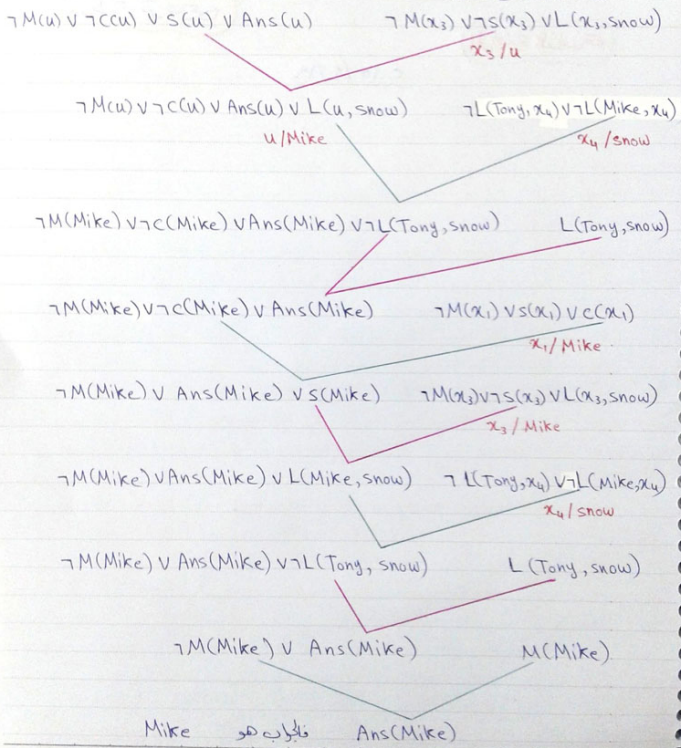 ¬M(u) ∨ ¬C(u) ∨ S(u) ∨ Ans(u) ¬M(x₃) ∨ ¬S(x₃) ∨ L(x₃,snow)
x₃/u
¬M(u) ∨ ¬C(u) ∨ Ans(u) ∨ L(u,snow) ¬L(Tony,x₄) ∨ ¬L(Mike,x₄)
u/Mike x₄/snow
¬M(Mike) ∨ ¬C(Mike) ∨ Ans(Mike) ∨ ¬L(Tony,snow) L(Tony,snow)
¬M(Mike) ∨ ¬C(Mike) ∨ Ans(Mike) ¬M(x₁) ∨ S(x₁) ∨ C(x₁)
x₁/Mike
¬M(Mike) ∨ Ans(Mike) ∨ S(Mike) ¬M(x₃) ∨ ¬S(x₃) ∨ L(x₃,snow)
x₃/Mike
¬M(Mike) ∨ Ans(Mike) ∨ L(Mike,snow) ¬L(Tony,x₄) ∨ ¬L(Mike,x₄)
x₄/snow
¬M(Mike) ∨ Ans(Mike) ∨ ¬L(Tony, snow) L(Tony,snow)
¬M(Mike) ∨ Ans(Mike) M(Mike)
Mike فالجواب هو Ans(Mike)